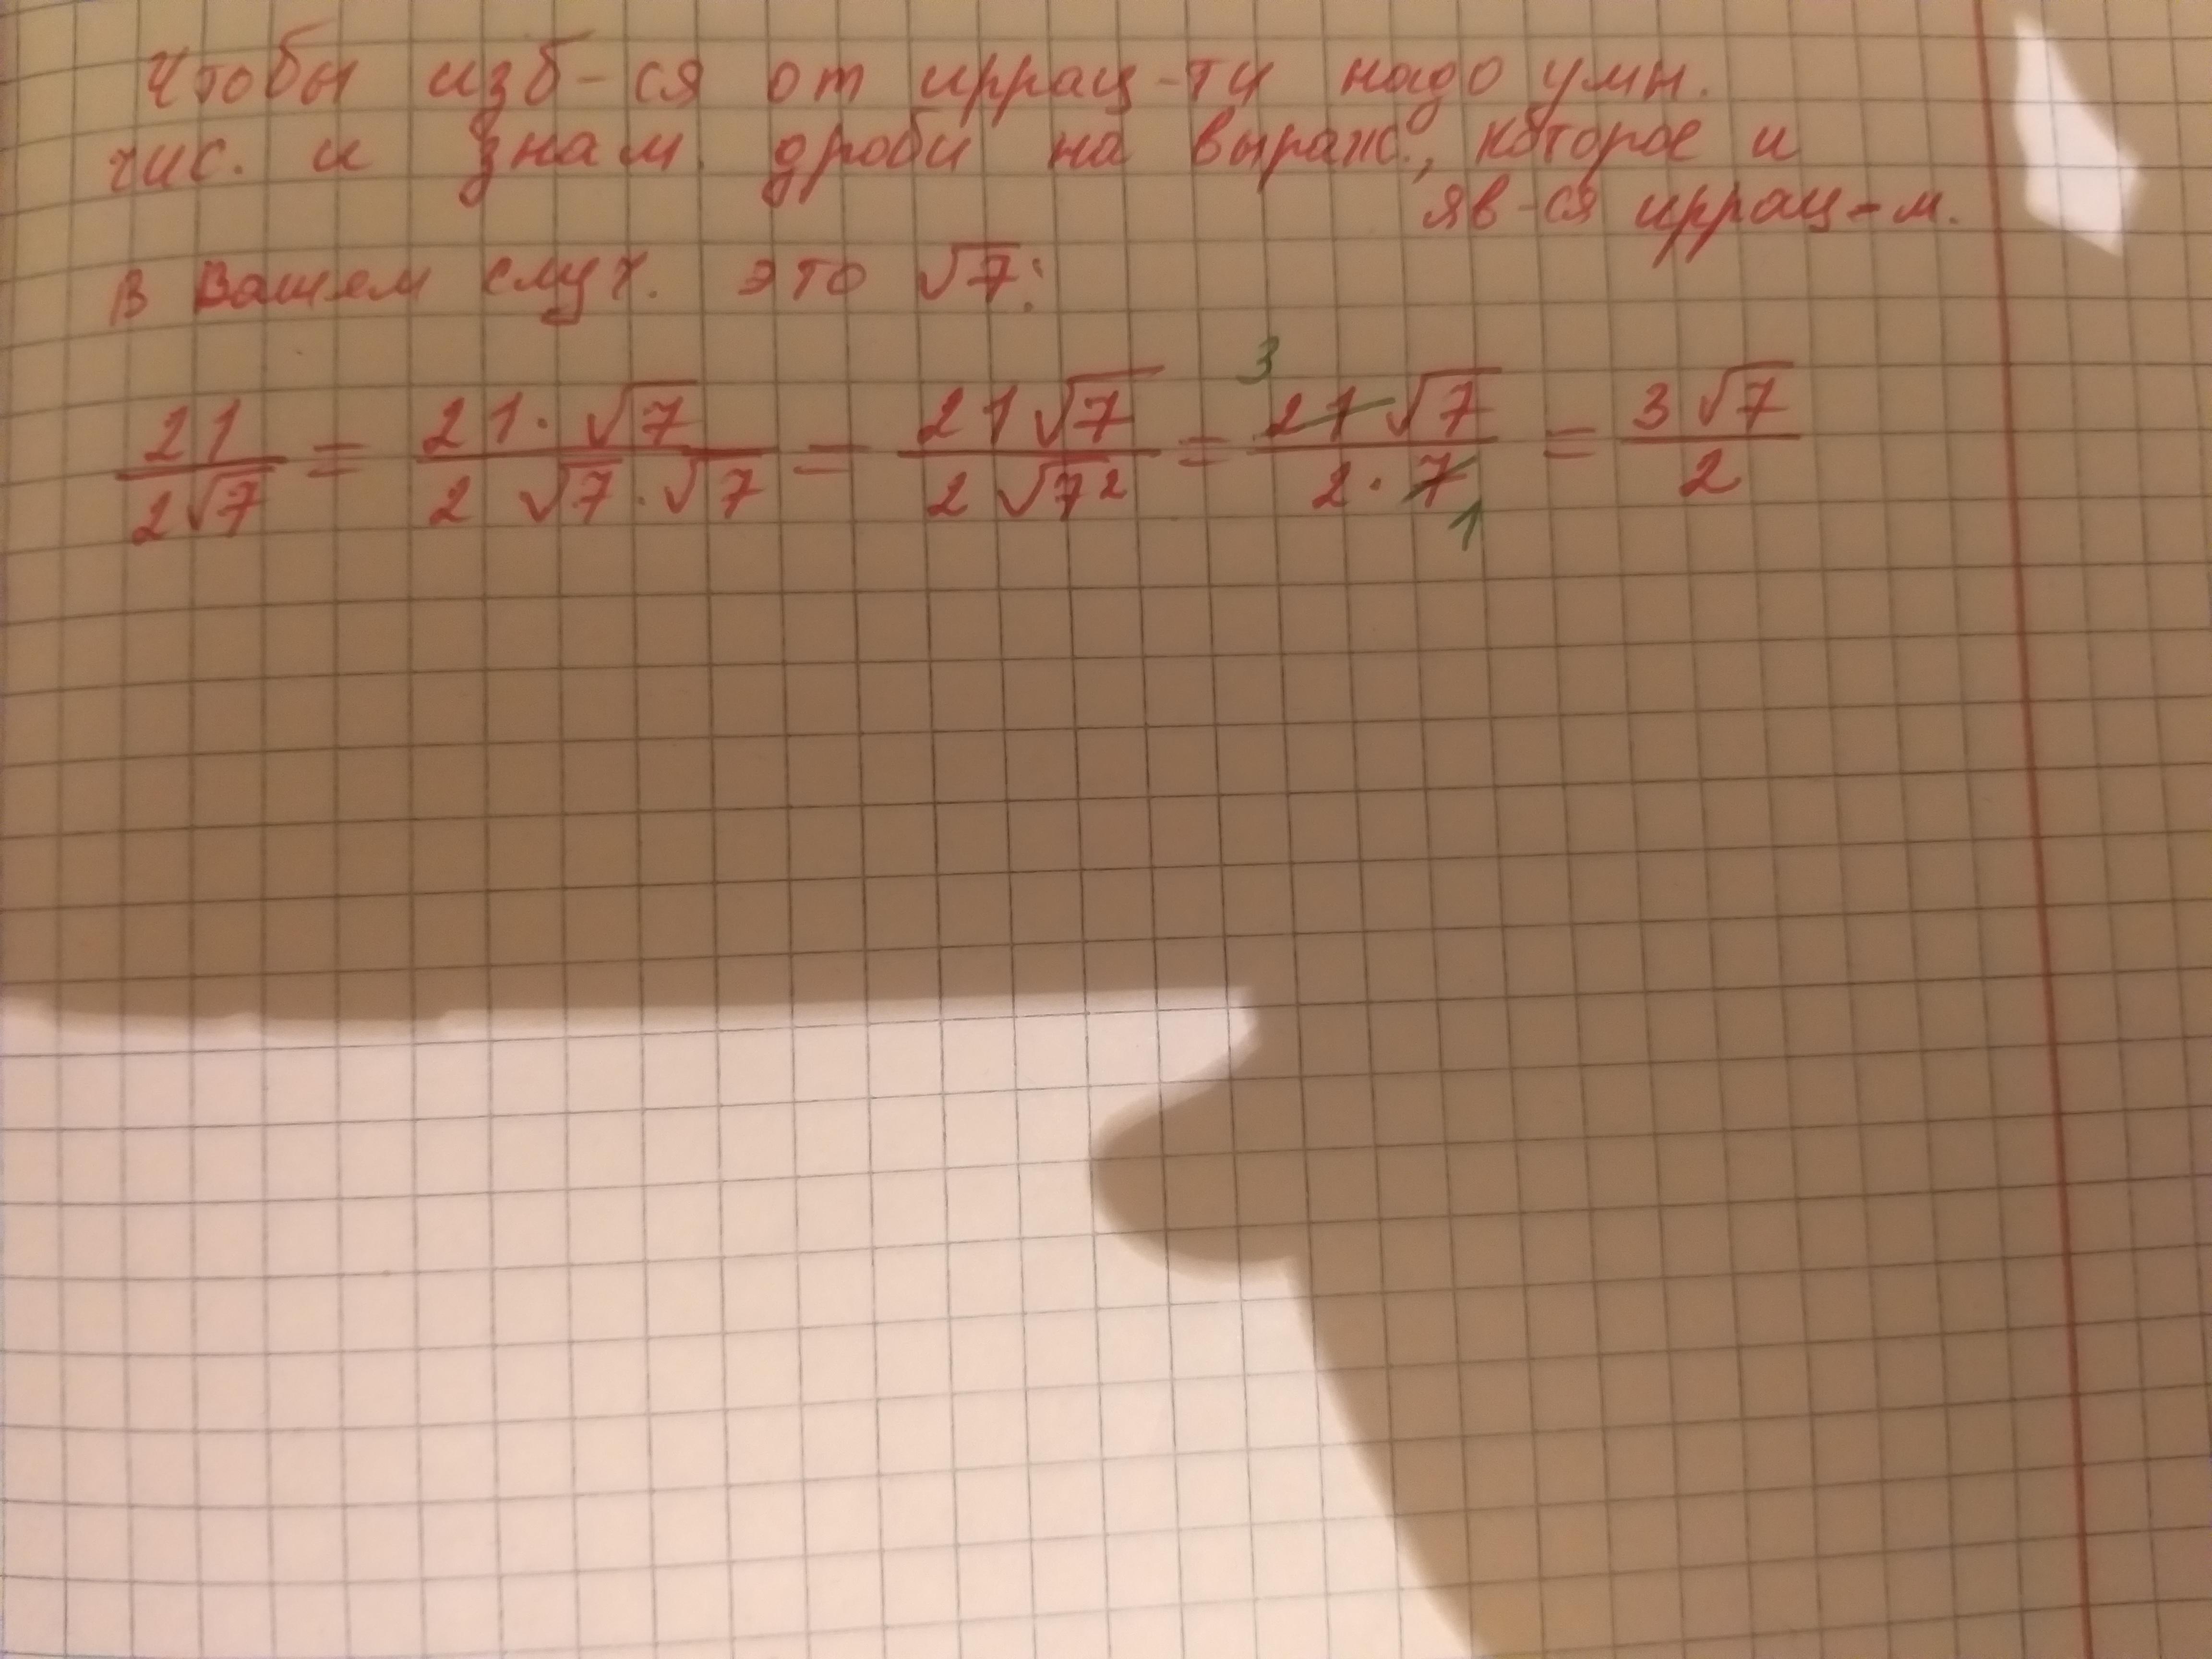 Чтобы изб-ся от иррац-ти надо умн.
чис. и знам. дроби на выраж., которое и
яв-ся иррац-м.
В Вашем случ. это √7:
21/(2√7) = (21·√7)/(2 √7·√7) = (21√7)/(2 √7²) = (21√7)/(2·7) = (3√7)/2
3
1